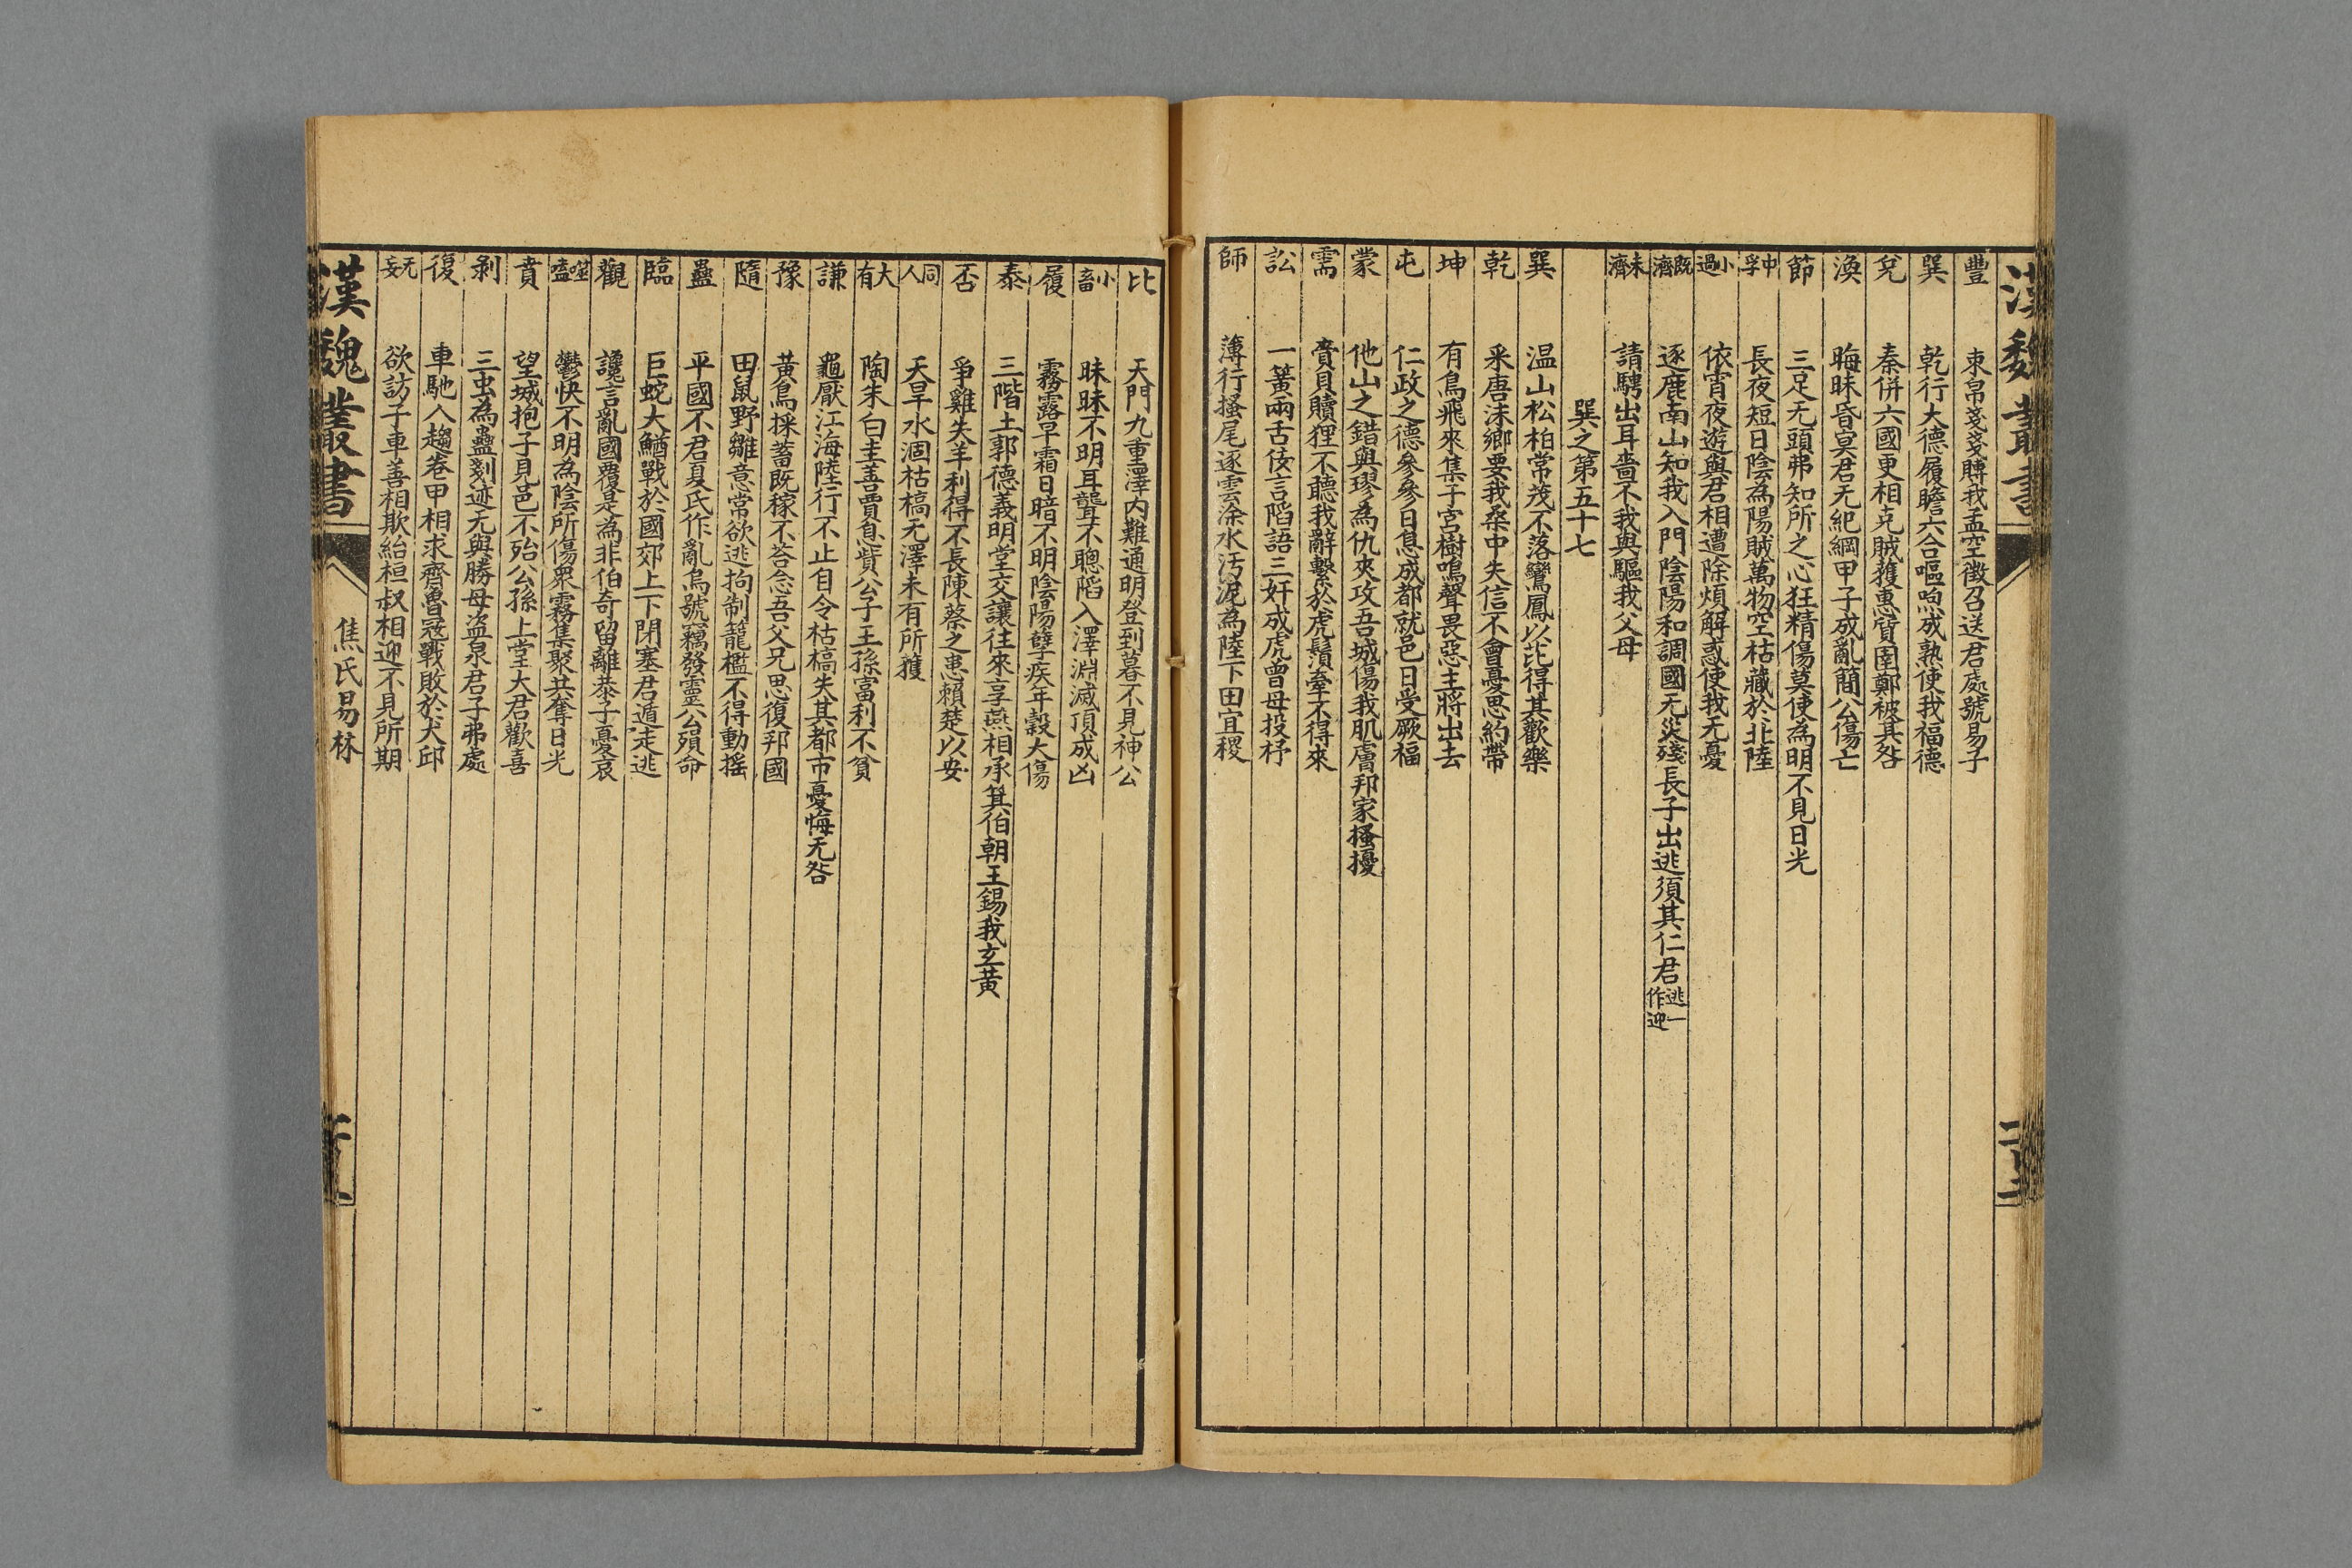 漢魏叢書
豐 束帛戔戔賻我孟空徵召送君處號易子
巽 乾行大德履瞻六合嘔呴成熟使我福德
兌 秦併六國更相克賊獲惠質圉鄭被其咎
渙 晦昧昏冥君无紀綱甲子成亂簡公傷亡
節 三足无頭弗知所之心狂精傷莫使為明不見日光
中孚 長夜短日陰為陽賊萬物空枯藏於北陸
小過 依宵夜遊與君相遭除煩解惑使我无憂
既濟 逐鹿南山知我入門陰陽和調國无災殘長子出逃須其仁君逃一作迎
未濟 請騁出耳嗇不我與驅我父母
巽之第五十七
巽 温山松柏常茂不落鸞鳳以庇得其歡樂
乾 采唐沬鄉要我桑中失信不會憂思約帶
坤 有鳥飛來集于宮樹鳴聲畏惡主將出去
屯 仁政之德參參日息成都就邑日受厥福
蒙 他山之錯與璆為仇夾攻吾城傷我肌膚邦家搔擾
需 賫貝贖狸不聽我辭繫於虎鬚牽不得來
訟 一簧兩舌佞言陷語三奸成虎曾母投杼
師 薄行搔尾逐雲涂水汚泥為陸下田宜稷
比 天門九重深内難通明登到暮不見神公
小畜 昧昧不明耳聾不聰陷入澤淵滅頂成凶
履 霧露早霜日暗不明陰陽孽疾年穀大傷
泰 三階土郭德義明堂交讓往來享燕相承箕伯朝王錫我玄黃
否 爭雞失羊利得不長陳蔡之患賴楚以安
同人 天旱水涸枯槁无澤未有所獲
大有 陶朱白圭善賈息貲公子王孫富利不貧
謙 龜厭江海陸行不止自令枯槁失其都市憂悔无咎
豫 黃鳥採蓄既稼不荅念吾父兄思復邦國
隨 田鼠野雛意常欲逃拘制籠檻不得動揺
蠱 平國不君夏氏作亂烏號竊發靈公殞命
臨 巨蛇大鰌戰於國郊上下閉塞君道走逃
觀 讒言亂國覆是為非伯奇留離恭子憂哀
噬嗑 鬱怏不明為陰所傷衆霧集聚共奪日光
賁 望城抱子見邑不殆公孫上堂大君歡喜
剝 三虫為蠱剗迹无與勝母盜泉君子弗處
復 車馳入趨卷甲相求齊魯寇戰敗於犬邱
无妄 欲訪子車善相欺紿桓叔相迎不見所期
漢魏叢書
焦氏易林